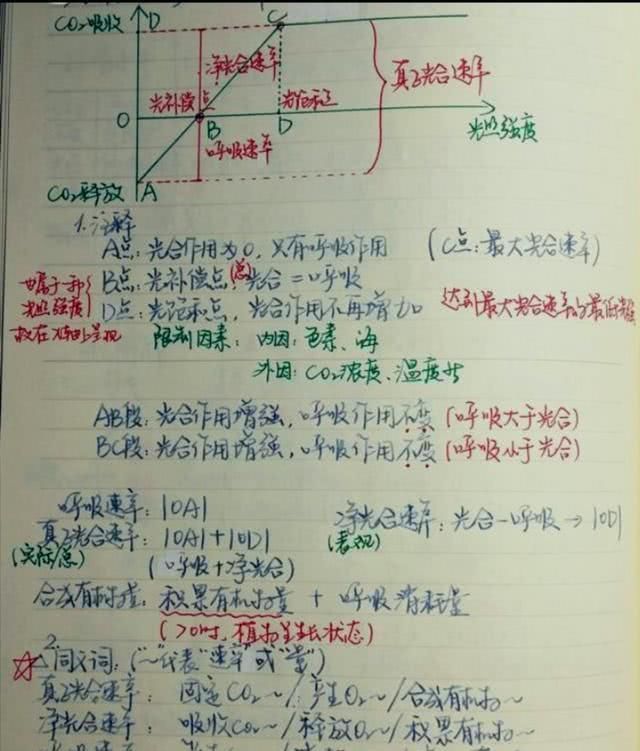 CO₂吸收 D C
净光合速率
真正光合速率
光补偿点 光饱和点
O B D 光照强度
呼吸速率
CO₂释放 A
1. 注释
A点: 光合作用为0, 只有呼吸作用 (C点: 最大光合速率)
B点: 光补偿点, (总)光合 = 呼吸
D点: 光饱和点, 光合作用不再增加 达到最大光合速率的最低
也属于一种
光照强度
故在 呈现
限制因素: 内因: 色素、
外因: CO₂浓度、温度
AB段: 光合作用增强, 呼吸作用不变 (呼吸大于光合)
BC段: 光合作用增强, 呼吸作用不变 (呼吸小于光合)
呼吸速率: |OA| 净光合速率: 光合-呼吸 → |OD|
真正光合速率: |OA|+|OD| (表观)
(实际/总) (呼吸+净光合)
合成有机物量: 积累有机物量 + 呼吸消耗量
(>0时, 植物生长状态)
2.
☆ 同义词: ("~"代表"速率"或"量")
真正光合速率: 固定CO₂~/产生O₂~/合成有机物~
净光合速率: 吸收CO₂~/释放O₂~/积累有机物~